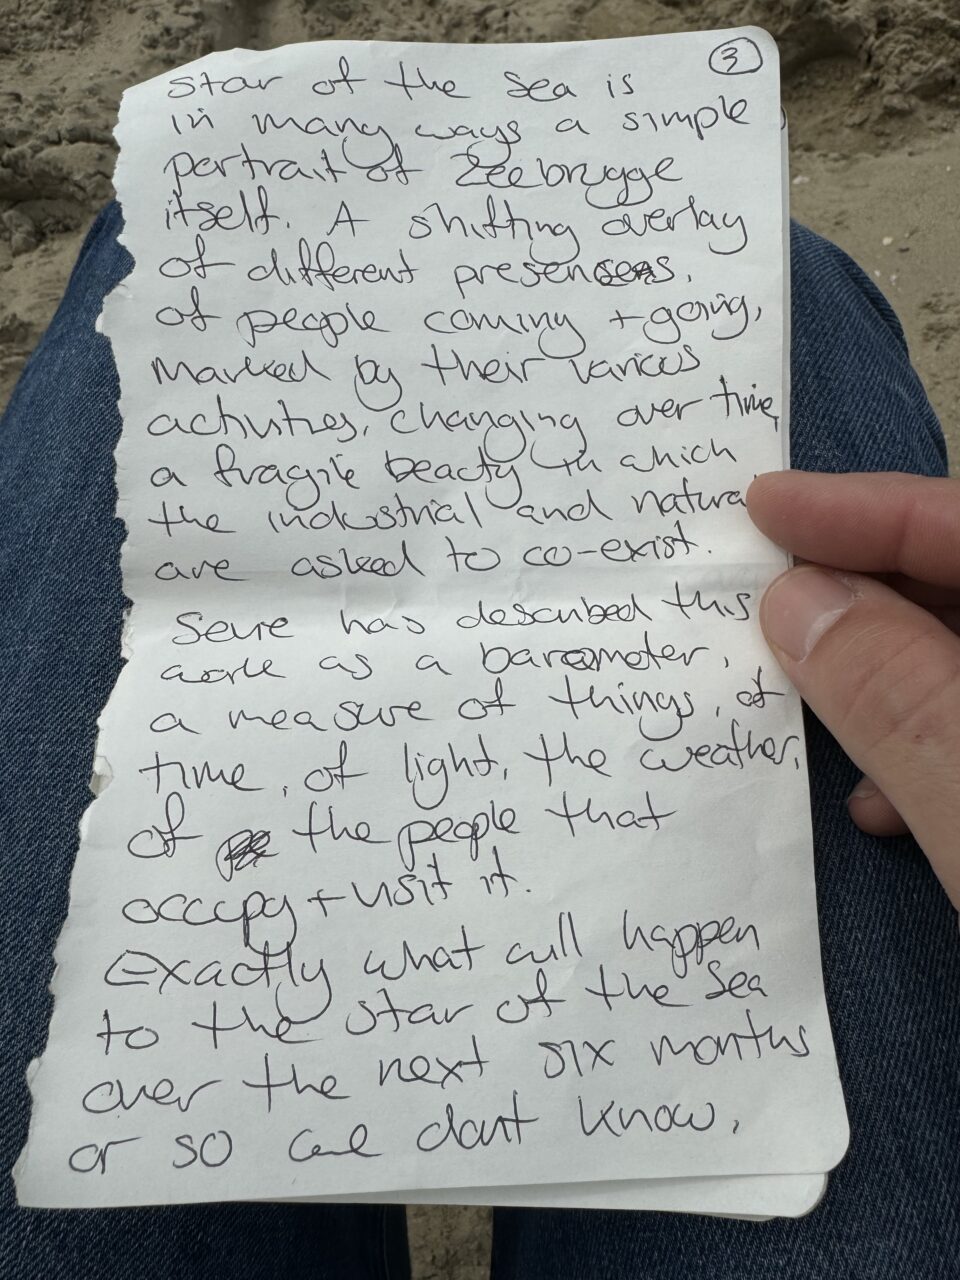 ③
Star of the Sea is
in many ways a simple
portrait of Zeebrugge
itself. A shifting overlay
of different presences,
of people coming + going,
marked by their various
activities, changing over time,
a fragile beauty in which
the industrial and natural
are asked to co-exist.
Seure has described this
work as a barometer,
a measure of things, of
time, of light, the weather,
of the people that
occupy + visit it.
Exactly what will happen
to the Star of the Sea
over the next six months
or so we dont know,